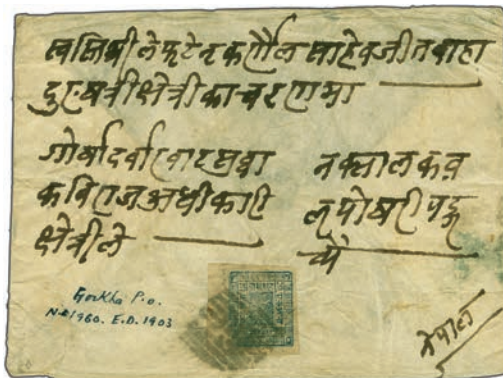 स्वस्तिश्री लेफ्टेन कर्णैल साहेब जीत बाहा
दुर षत्री क्षेत्रीका चरणमा
गोर्षा दर्वार सुव्वा
कविराज अधीकारी
क्षेत्रीले
नक्साल कव
ल पोषरी
Gorkha P.O.
N.S 1960. E.D. 1903
नेपाल